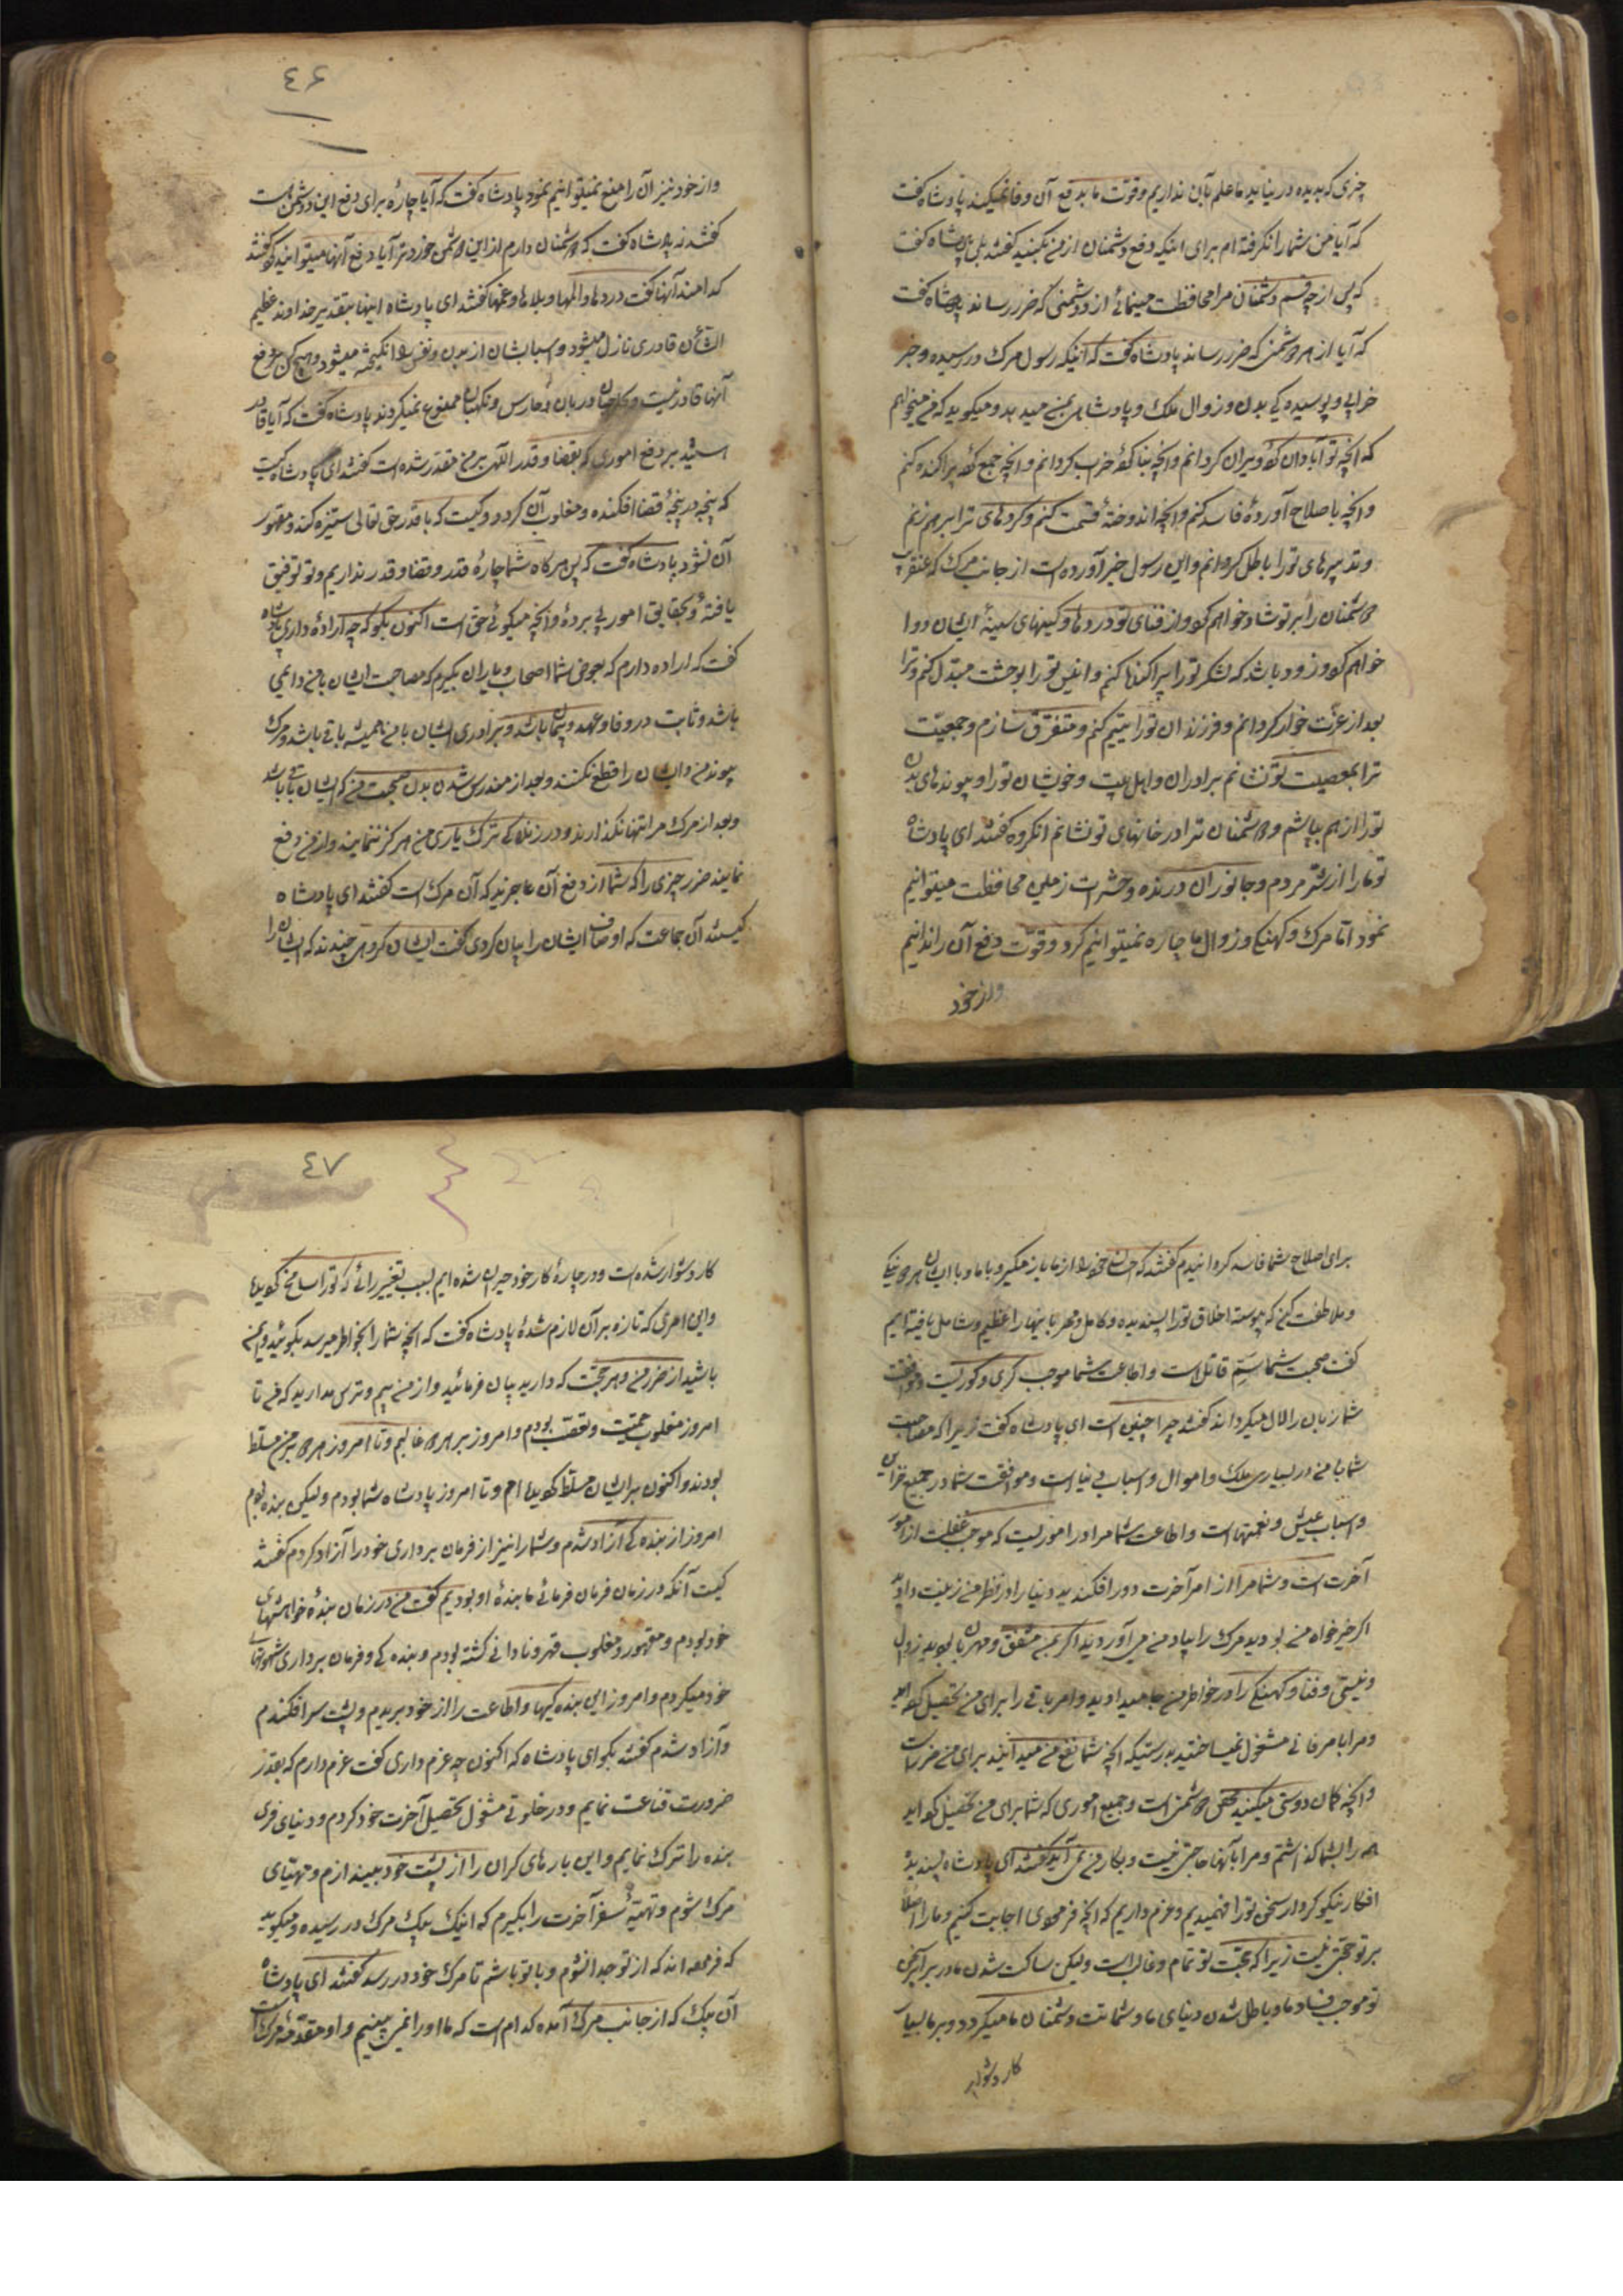 چیزی که بدیده در نیاید ما علم بآن نداریم وقوت ما بدفع آن وفا نمیکند پادشاه کفت
که آیا من شما را نکرفته ام برای اینکه دفع دشمنان از من بکنید کفتند بلی پادشاه کفت
که پس از چه قسم دشمنان مرا محافظت مینمائید از دشمنی که ضرر رساند پادشاه کفت
که آیا از هر دشمنی که ضرر رساند پادشاه کفت که اینکه رسول مرک در رسیده و خبر
خرابی و پوسیده کی بدن وزوال ملک و پادشاهی بمن میدهد و میکوید که من میخواهم
که آنچه تو آبادان کرده ویران کردانم وآنچه بنا کرده خراب کردانم وآنچه جمع کرده پراکنده کنم
وآنچه باصلاح آوردهٔ فاسد کنم وآنچه اندوختهٔ قسمت کنم وکردهای ترا برهم زنم
وتدبیرهای تو را باطل کردانم واین رسول خبر آورده است از جانب مرک که عنقریب
دشمنان را بر تو شاد خواهم کرد واز فنای تو دردها وکینهای سینهٔ ایشان دوا
خواهم کرد وزود باشد که لشکر تو را پراکنده کنم وانس تو را بوحشت مبدل کنم وترا
بعد از عزت خوار کردانم وفرزندان تو را یتیم کنم ومتفرق سازم وجمعیت
ترا بمعصیت تو نشانم برادران واهل بیت وخویشان تو را وپیوندهای بدن
تو را از هم بپاشم ودشمنان ترا در خانهای تو نشانم انکروه کفتند ای پادشاه
تو ما را از شر مردم وجانوران درنده وحشرات زمین محافظت میتوانیم
نمود اما مرک وکهنکی وزوال ما چاره نمیتوانیم کرد وقوت دفع آن را ندانیم
واز خود
٤۶
واز خود نیز آن را منع نمیتوانیم نمود پادشاه کفت که آیا چارهٔ برای دفع این دشمن است
کفتند نه پادشاه کفت که دشمنان دارم از این دشمن خورد تر آیا دفع آنها میتوانید کرد کفتند
کدامند آنها کفت دردها والمها وبلاها وغمها کفتند ای پادشاه اینها بتقدیر خداوند عظیم
الشأن قادری نازل میشود واسبابشان از بدن ونفس برانکیخته میشود وهیچ کس بر دفع
آنها قادر نیست وبحاجبان ودربان وحارس ونکهبان ممنوع نمیکردند پادشاه کفت که آیا قادر
هستید بر دفع اموری که بقضا وقدر الهی بر من مقدر شده است کفتند ای پادشاه کیست
که پنجه در پنجهٔ قضا افکنده ومغلوب آن نکردد وکیست که با قدر حق تعالی ستیزه کند ومقهور
آن نشود پادشاه کفت که پس هرکاه شما چارهٔ قدر وقضا وقدر نداریم وتو توفیق
یافتهٔ وبحقایق امور پی بردهٔ وآنچه میکوئی حق است اکنون بکو که چه ارادهٔ داری پادشاه
کفت که اراده دارم که بعوض شما اصحاب ویاران بکیرم که مصاحبت ایشان با من دائمی
باشد وثابت در وفا وعهد وپیمان باشد وبرادری ایشان با من همیشه باقی باشد ومرک
پیوند من وایشان را قطع نکند وبعد از مندرس شدن بدن صحبت من که ایشان باقی باشد
وبعد از مرک مرا تنها نکذارند ودر زندکانی ترک یاری من هرکز ننمایند واز من دفع
نمایند ضرر چیزی را که شما از دفع آن عاجزید که آن مرک است کفتند ای پادشاه
کیستند آن جماعت که اوصاف ایشان را بیان کردی کفت ایشان کروهی چندند که ایشان را
برای اصلاح شما فاسد کردانیدم کفتند که احسان خود را از ما باز مکیر وبا ما وبا ایشان نیکی
وملاطفت کن که پیوسته اخلاق تو را پسندیده وکامل ومهربانیها را عظیم وشامل یافته ایم
کفت صحبت شما سم قاتل است واطاعت شما موجب کری وکوریست وموافقت
شما زبان را لال میکرداند کفتند چرا چنین است ای پادشاه کفت زیرا که مصاحبت
شما با من در بسیاری ملک واموال واسباب دنیا است وموافقت شما در جمیع خزاین
واسباب عیش ونعمتها است واطاعت شما مرا در اموریست که موجب غفلت از امور
آخرت است وشما مرا از امر آخرت دور افکندید ودنیا را در نظر من زینت دادید
اکر خیرخواه من بودید مرک را بیاد من می آوردید واکر بمن مشفق ومهربان بودید زوال
ونیستی وفنا وکهنکی را در خاطر من جا میدادید وامر باقی را برای من تحصیل کرده اید
ومرا بامر فانی مشغول نمیساختید بدرستیکه آنچه شما نفع من میدانید برای من ضرر است
وآنچه کمان دوستی میکنید محض دشمنی است وجمیع اموری که شما برای من تحصیل کرده اید
همه را بشما کذاشتم ومرا بآنها حاجتی نیست وبکار من نمی آید کفتند ای پادشاه پسندیدهٔ
افکار نیکو کردار سخن تو را فهمیدیم وعزم داریم که آنچه فرمودی اجابت کنیم وما را اصلاً
بر تو حجتی نیست زیرا که حجت تو تمام وغالب است ولیکن ساکت شدن ما در برابر آنچه
تو موجب فساد ما وباطل شدن دنیای ما وشماتت دشمنان ما میکردد وبر ما بسیار
کار دشوار
٤٧
کار دشوار شده است ودر چارهٔ کار خود حیران شده ایم بسبب تغییر رائی که تو را سانح کردیده
واین امری که تازه بر آن لازم شدهٔ پادشاه کفت که آنچه شما را بخاطر میرسد بکوئید وایمن
باشید از ضرر من وهر حجت که دارید بیان فرمائید واز من بیم وترس مدارید که من تا
امروز مغلوب حمیت وتعصب بودم وامروز بر هر دو غالبم وتا امروز هر دو بر من مسلط
بودند واکنون بر ایشان مسلط کردیده ام وتا امروز پادشاه شما بودم ولیکن بنده بودم
امروز از بنده کی آزاد شدم وشما را نیز از فرمان برداری خود را آزاد کردم کفتند
کیست آنکه در زمان فرمان فرمائی ما بندهٔ او بودیم کفت من در زمان بندهٔ خواهشهای
خود بودم ومقهور ومغلوب قهر ونادانی کشته بودم وبنده کی وفرمان برداری شهوتهای
خود میکردم وامروز این بنده کیها واطاعت را از خود بریدم وپشت سر افکندم
وآزاد شدم کفتند بکو ای پادشاه که اکنون چه عزم داری کفت عزم دارم که بقدر
ضرورت قناعت نمایم ودر خلوتی مشغول تحصیل آخرت خود کردم ودنیای فری
بنده را ترک نمایم واین بارهای کران را از پشت خود بیندازم ومهیای
مرک شوم وتهیهٔ سفر آخرت را بکیرم که اینک پیک مرک در رسیده ومیکوید
که فرموده اند که از تو جدا نشوم وبا تو باشم تا مرک خود در رسد کفتند ای پادشاه
آن پیک که از جانب مرک آمده کدام است که ما او را نمی بینیم واو مقدمهٔ مرک است